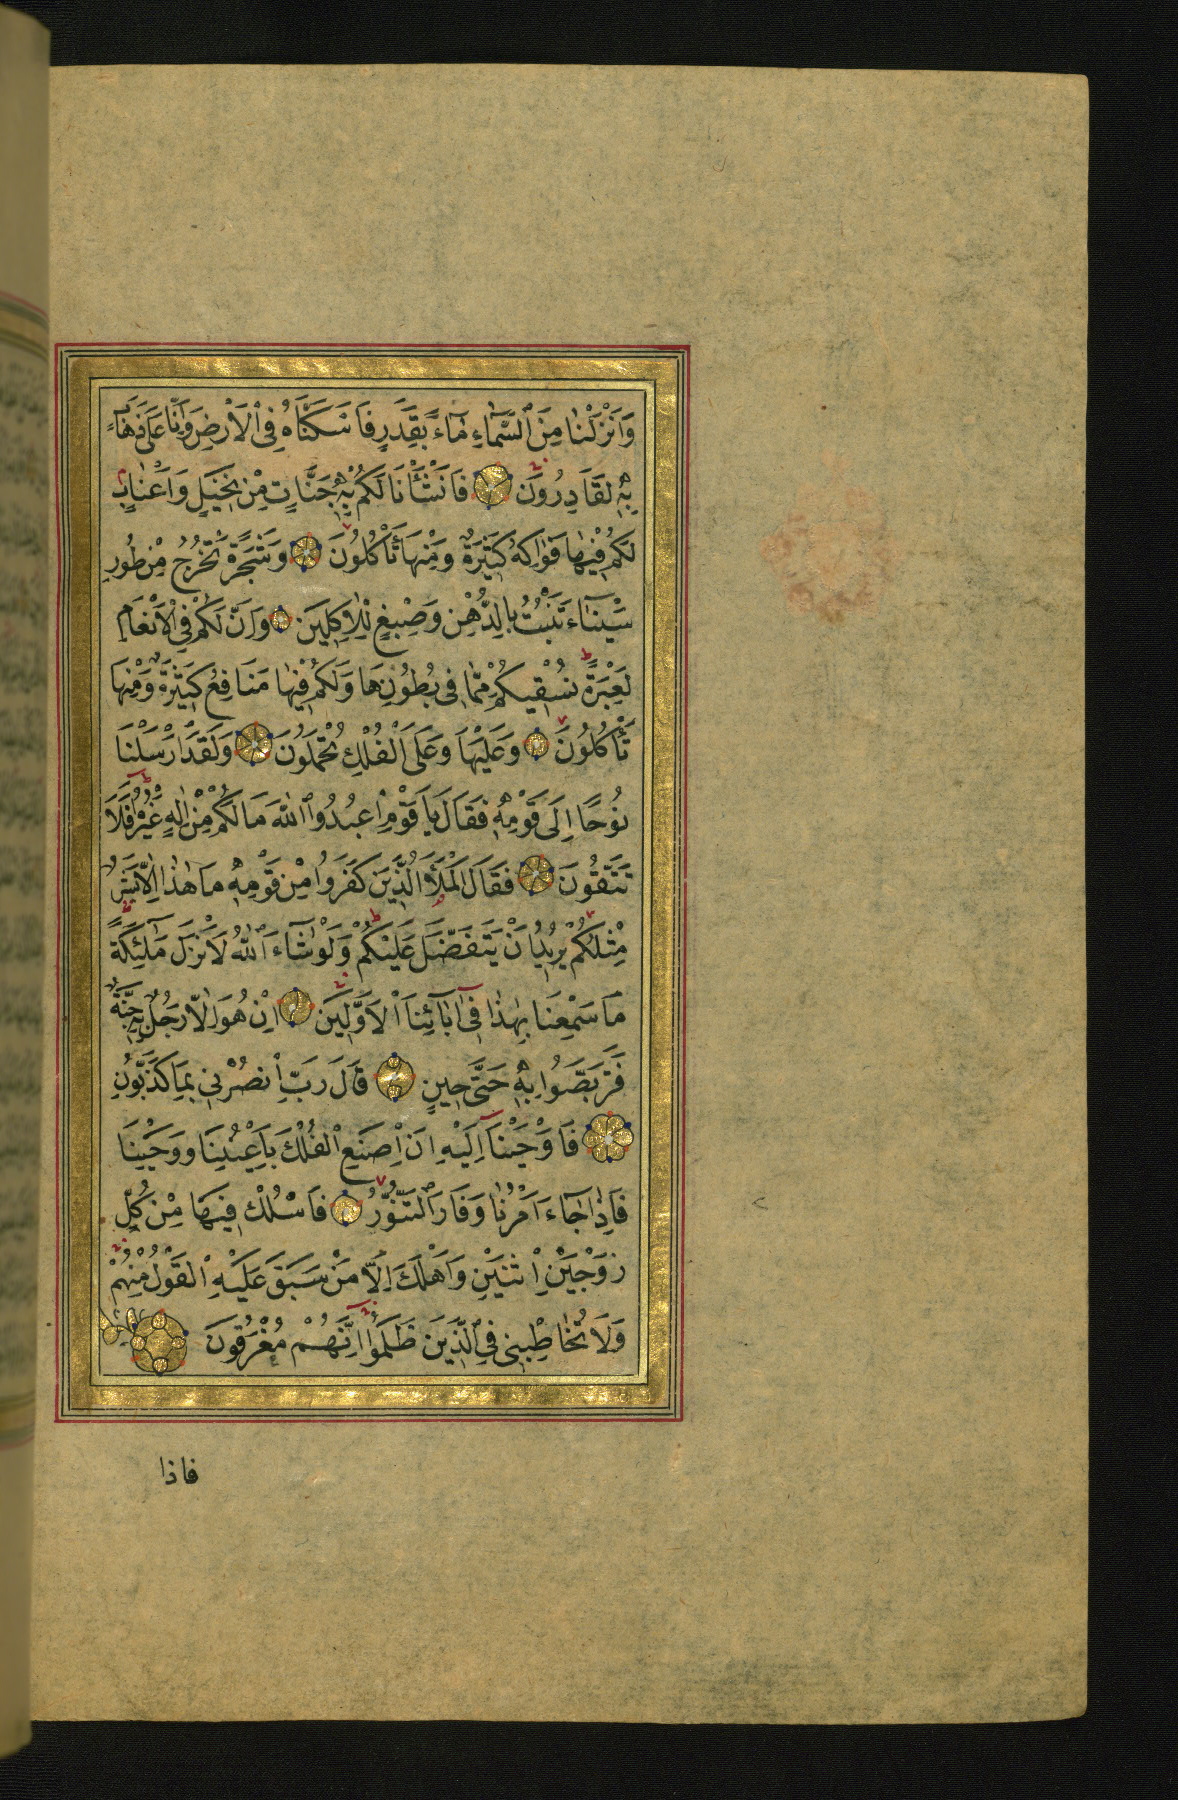 وَاَنْزَلْنَا مِنَ ٱلسَّمَٓاءِ مَٓاءً بِقَدَرٍ فَاَسْكَنَّاهُ فِى ٱلْاَرْضِ وَاِنَّا عَلٰى ذَهَابٍ
بِهٖ لَقَادِرُونَ فَاَنْشَأْنَا لَكُمْ بِهٖ جَنَّاتٍ مِنْ نَخٖيلٍ وَاَعْنَابٍ
لَكُمْ فٖيهَا فَوَاكِهُ كَثٖيرَةٌ وَمِنْهَا تَأْكُلُونَ وَشَجَرَةً تَخْرُجُ مِنْ طُورِ
سَيْنَٓاءَ تَنْبُتُ بِالدُّهْنِ وَصِبْغٍ لِلْاٰكِلٖينَ وَاِنَّ لَكُمْ فِى الْاَنْعَامِ
لَعِبْرَةً نُسْقٖيكُمْ مِمَّا فٖى بُطُونِهَا وَلَكُمْ فٖيهَا مَنَافِعُ كَثٖيرَةٌ وَمِنْهَا
تَأْكُلُونَ وَعَلَيْهَا وَعَلَى الْفُلْكِ تُحْمَلُونَ وَلَقَدْ اَرْسَلْنَا
نُوحًا اِلٰى قَوْمِهٖ فَقَالَ يَا قَوْمِ اعْبُدُوا ٱللّٰهَ مَالَكُمْ مِنْ اِلٰهٍ غَيْرُهُ اَفَلَا
تَتَّقُونَ فَقَالَ الْمَلَأُ الَّذٖينَ كَفَرُوا مِنْ قَوْمِهٖ مَا هٰذَا اِلَّا بَشَرٌ
مِثْلُكُمْ يُرٖيدُ اَنْ يَتَفَضَّلَ عَلَيْكُمْ وَلَوْ شَٓاءَ ٱللّٰهُ لَاَنْزَلَ مَلٰٓئِكَةً
مَا سَمِعْنَا بِهٰذَا فٖٓى اٰبَٓائِنَا الْاَوَّلٖينَ اِنْ هُوَ اِلَّا رَجُلٌ بِهٖ جِنَّةٌ
فَتَرَبَّصُوا بِهٖ حَتّٰى حٖينٍ قَالَ رَبِّ انْصُرْنٖى بِمَا كَذَّبُونِ
فَاَوْحَيْنَٓا اِلَيْهِ اَنِ اصْنَعِ الْفُلْكَ بِاَعْيُنِنَا وَوَحْيِنَا
فَاِذَا جَٓاءَ اَمْرُنَا وَفَارَ التَّنُّورُ فَاسْلُكْ فٖيهَا مِنْ كُلٍّ
زَوْجَيْنِ اثْنَيْنِ وَاَهْلَكَ اِلَّا مَنْ سَبَقَ عَلَيْهِ الْقَوْلُ مِنْهُمْ
وَلَا تُخَاطِبْنٖى فِى الَّذٖينَ ظَلَمُوٓا اِنَّهُمْ مُغْرَقُونَ
فاذا